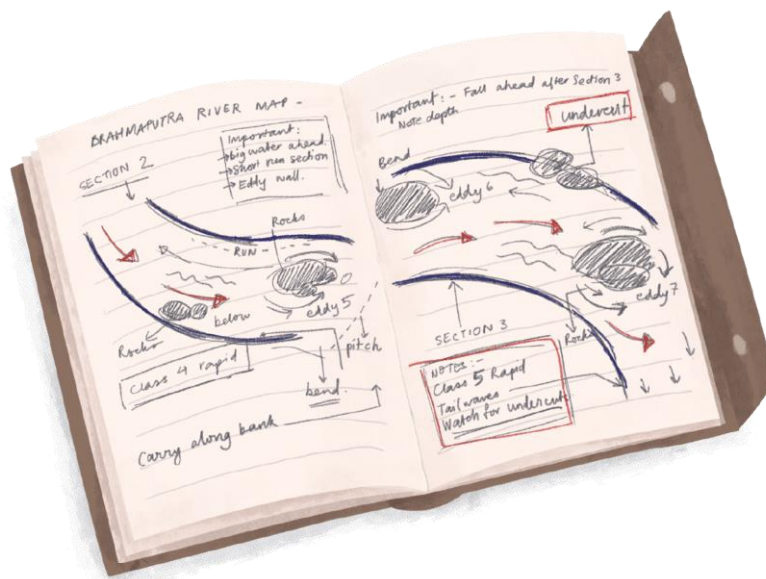 BRAHMAPUTRA RIVER MAP -
SECTION 2
Important:
→ big water ahead.
→ Short run section
→ Eddy wall.
Rocks
RUN
Rocks
below
eddy 5
pitch
Class 4 rapid
bend.
Carry along bank
Important: - Fall ahead after Section 3
Note depth
undercut
Bend
eddy 6
eddy 7
SECTION 3
Rocks
NOTES :-
Class 5 Rapid
Tail waves
Watch for undercuts